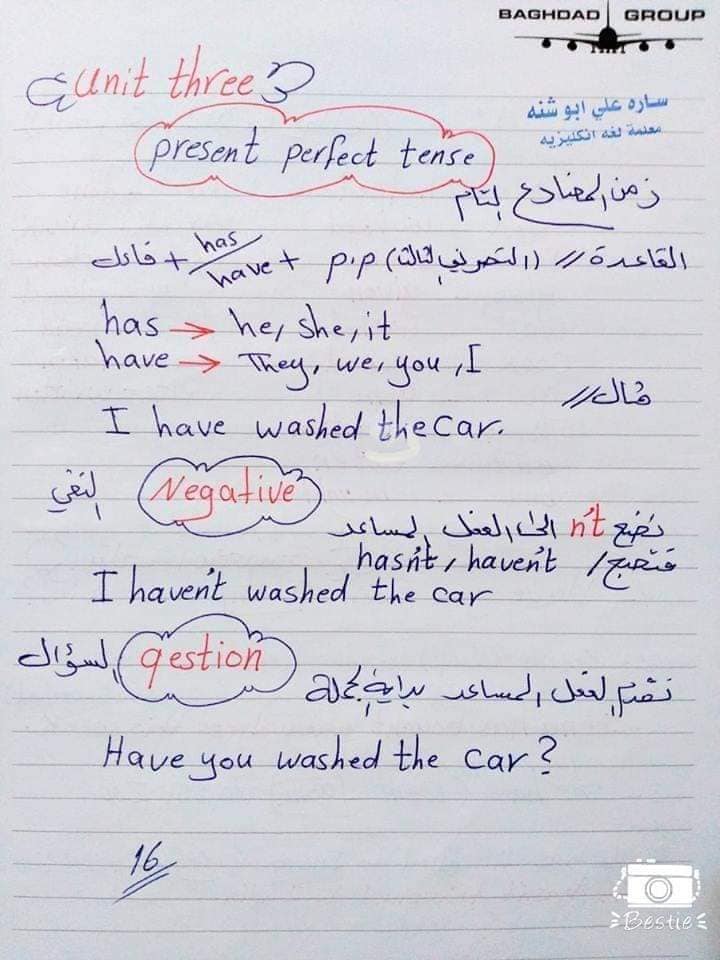 BAGHDAD GROUP
unit three
ساره علي ابو شنه
معلمة لغه انكليزيه
present perfect tense
زمن المضارع التام
القاعدة // (التصريف الثالث) p.p + has/have + فاعل
has → he, she, it
have → They, we, you, I
مثال //
I have washed the car.
Negative النفي
نضع n't الى الفعل المساعد
فتصبح / hasn't, haven't
I haven't washed the car
qestion السؤال
نقدم الفعل المساعد بداية الجملة
Have you washed the car?
16
Bestie